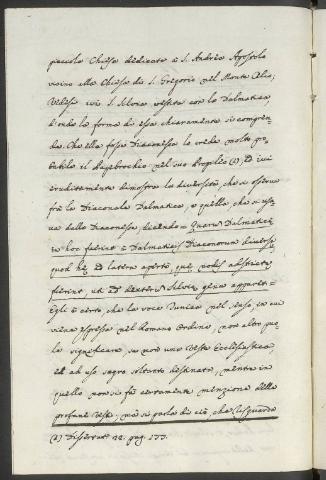 piccola Chiesa dedicata a S. Andrea Apostolo
vicino alla Chiesa di S. Gregorio nel Monte Celio;
Vedesi ivi S. Silvia vestita con la Dalmatica,
onde la forma di essa chiaramente si compren-
de. Che ella fosse Diaconessa lo crede molto pro-
babile il Papebrochio nel suo Propileo (2), ed ivi
eruditamente dimostra la diversità, che si osserva
frà la Diaconale Dalmatica, e quella che si usa-
va dalle Diaconesse, dicendo = Quarum Dalmaticæ
in hoc fuerint a Dalmaticis Diaconorum diversæ,
quod hæ ad latera apertæ, quæ nodis adstrictæ
fuerint, ut ex Silviæ
Egli è certo, che la voce Tunica nel senso, in cui
viene espressa nel Romano Ordine, non altro può
significare, se non una Veste Ecclesiastica,
ed ad uso sagro soltanto destinata, mentre in
quello non si fà certamente menzione delle
profane Vesti, mà si parla di ciò, che riguarda
(2) Dissertat. 22. pag. 177.